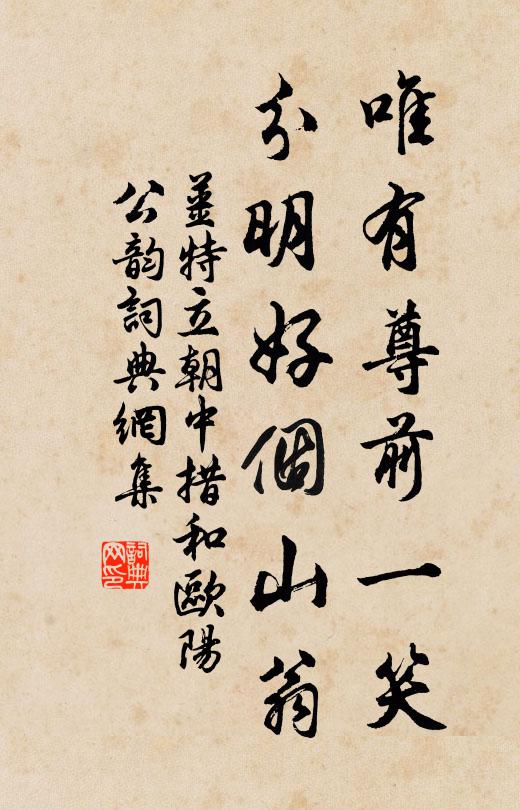 唯有尊前一笑
分明好個山翁
薑特立朝中措和歐陽
公韵詞典網集
詞典网印